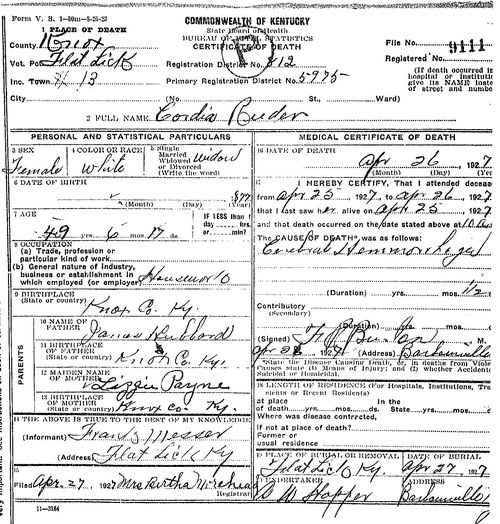 Form V. S. 1-50m-8-26-27
COMMONWEALTH OF KENTUCKY
1 PLACE OF DEATH
State Board of Health
BUREAU OF VITAL STATISTICS
County Knox
CERTIFICATE OF DEATH
File No. 9111
Vot. Pct Flat Lick
Registration District No. 812
Registered No.
Inc. Town # 13
Primary Registration District No. 5975
(If death occurred in
hospital or Instituti
give its NAME inste
of street and numbe
City (No. St., Ward)
2 FULL NAME Cordia
PERSONAL AND STATISTICAL PARTICULARS
MEDICAL CERTIFICATE OF DEATH
3 SEX
Female
4 COLOR OR RACE
White
5 Single
Married
Widowed
or Divorced
(Write the word)
Widow
16 DATE OF DEATH
Apr 26 1927
(Month) (Day) (Year
6 DATE OF BIRTH
(Month) (Day) (Year)
I HEREBY CERTIFY, That I attended deceas
from apr 25 1927 to apr 26 1927
that I last saw her alive on apr 25 1927
and that death occurred on the date stated above at 10 a
7 AGE
49 yrs. 6 mos. 17 ds.
IF LESS than 1
day hrs.
or min.?
The CAUSE OF DEATH* was as follows:
Cerebral
8 OCCUPATION
(a) Trade, profession or
particular kind of work
(b) General nature of industry,
business or establishment in
which employed (or employer)
(Duration) yrs. mos. 1/2
Contributory
(Secondary)
9 BIRTHPLACE
(State or country)
Knox Co. Ky.
(Duration) yrs. mos.
PARENTS
10 NAME OF
FATHER
James Hubbard
11 BIRTHPLACE
OF FATHER
(State or country)
Knox Co. Ky.
12 MAIDEN NAME
OF MOTHER
Lizzie Payne
13 BIRTHPLACE
OF MOTHER
(State or country)
Knox Co. Ky.
(Signed) M.
192 (Address) Barbourville
*State the Disease Causing Death, or, in deaths from Viol
Causes state (1) Means of Injury; and (2) whether Accidenta
Suicidal or Homicidal.
18 LENGTH OF RESIDENCE (For Hospitals, Institutions, Tra
sients or Recent Residents)
at place
of death yrs. mos. ds.
In the
State yrs. mos.
Where was disease contracted,
If not at place of death?
Former or
usual residence
14 THE ABOVE IS TRUE TO THE BEST OF MY KNOWLEDGE
(Informant) Messer
(Address) Flat Lick Ky
19 PLACE OF BURIAL OR REMOVAL
Flat Lick Ky.
DATE OF BURIAL
Apr 27 1927
15 Filed Apr. 27 1927 Mrs Bertha
Registrar
20 UNDERTAKER
W Hopper
ADDRESS
Barbourville
11-3184